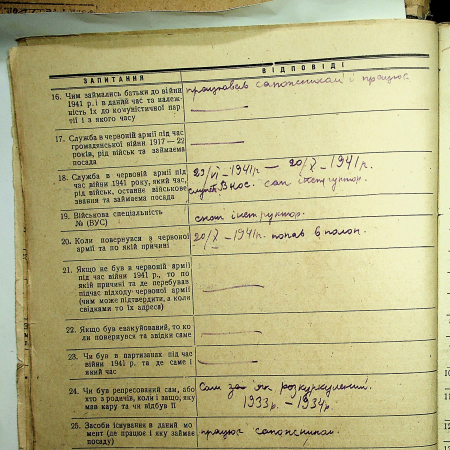 ЗАПИТАННЯ
ВІДПОВІДІ
16. Чим займались батьки до війни
1941 р. і в даний час та належ-
ність їх до комуністичної пар-
тії і з якого часу
працював сапожником і працює
17. Служба в червоній армії під час
громадянської війни 1917—22
років, рід військ та займаєма
посада
18. Служба в червоній армії під
час війни 1941 року, який час,
рід військ, останнє військове
звання та займаєма посада
23/VI – 1941р. — 20/X – 1941р.
сан інструктор.
19. Військова спеціальність
№ (ВУС)
сан інструктор.
20. Коли повернувся з червоної
армії та по якій причині
20/X – 1941р. попав в полон.
21. Якщо не був в червоній армії
під час війни 1941 р., то по
якій причині та де перебував
підчас відходу червоної армії
(чим може підтвердити, а коли
свідками то їх адреса)
22. Якщо був евакуйований, то ко-
ли повернувся та звідки саме
23. Чи був в партизанах під час
війни 1941 р. та де саме і
який час
24. Чи був репресований сам, або
хто з родичів, коли і защо, яку
мав кару та чи відбув її
Сам за як розкуркулений.
1933р. – 1934р.
25. Засоби існування в даний мо-
мент (де працює і яку займає
посаду)
працює сапожником.